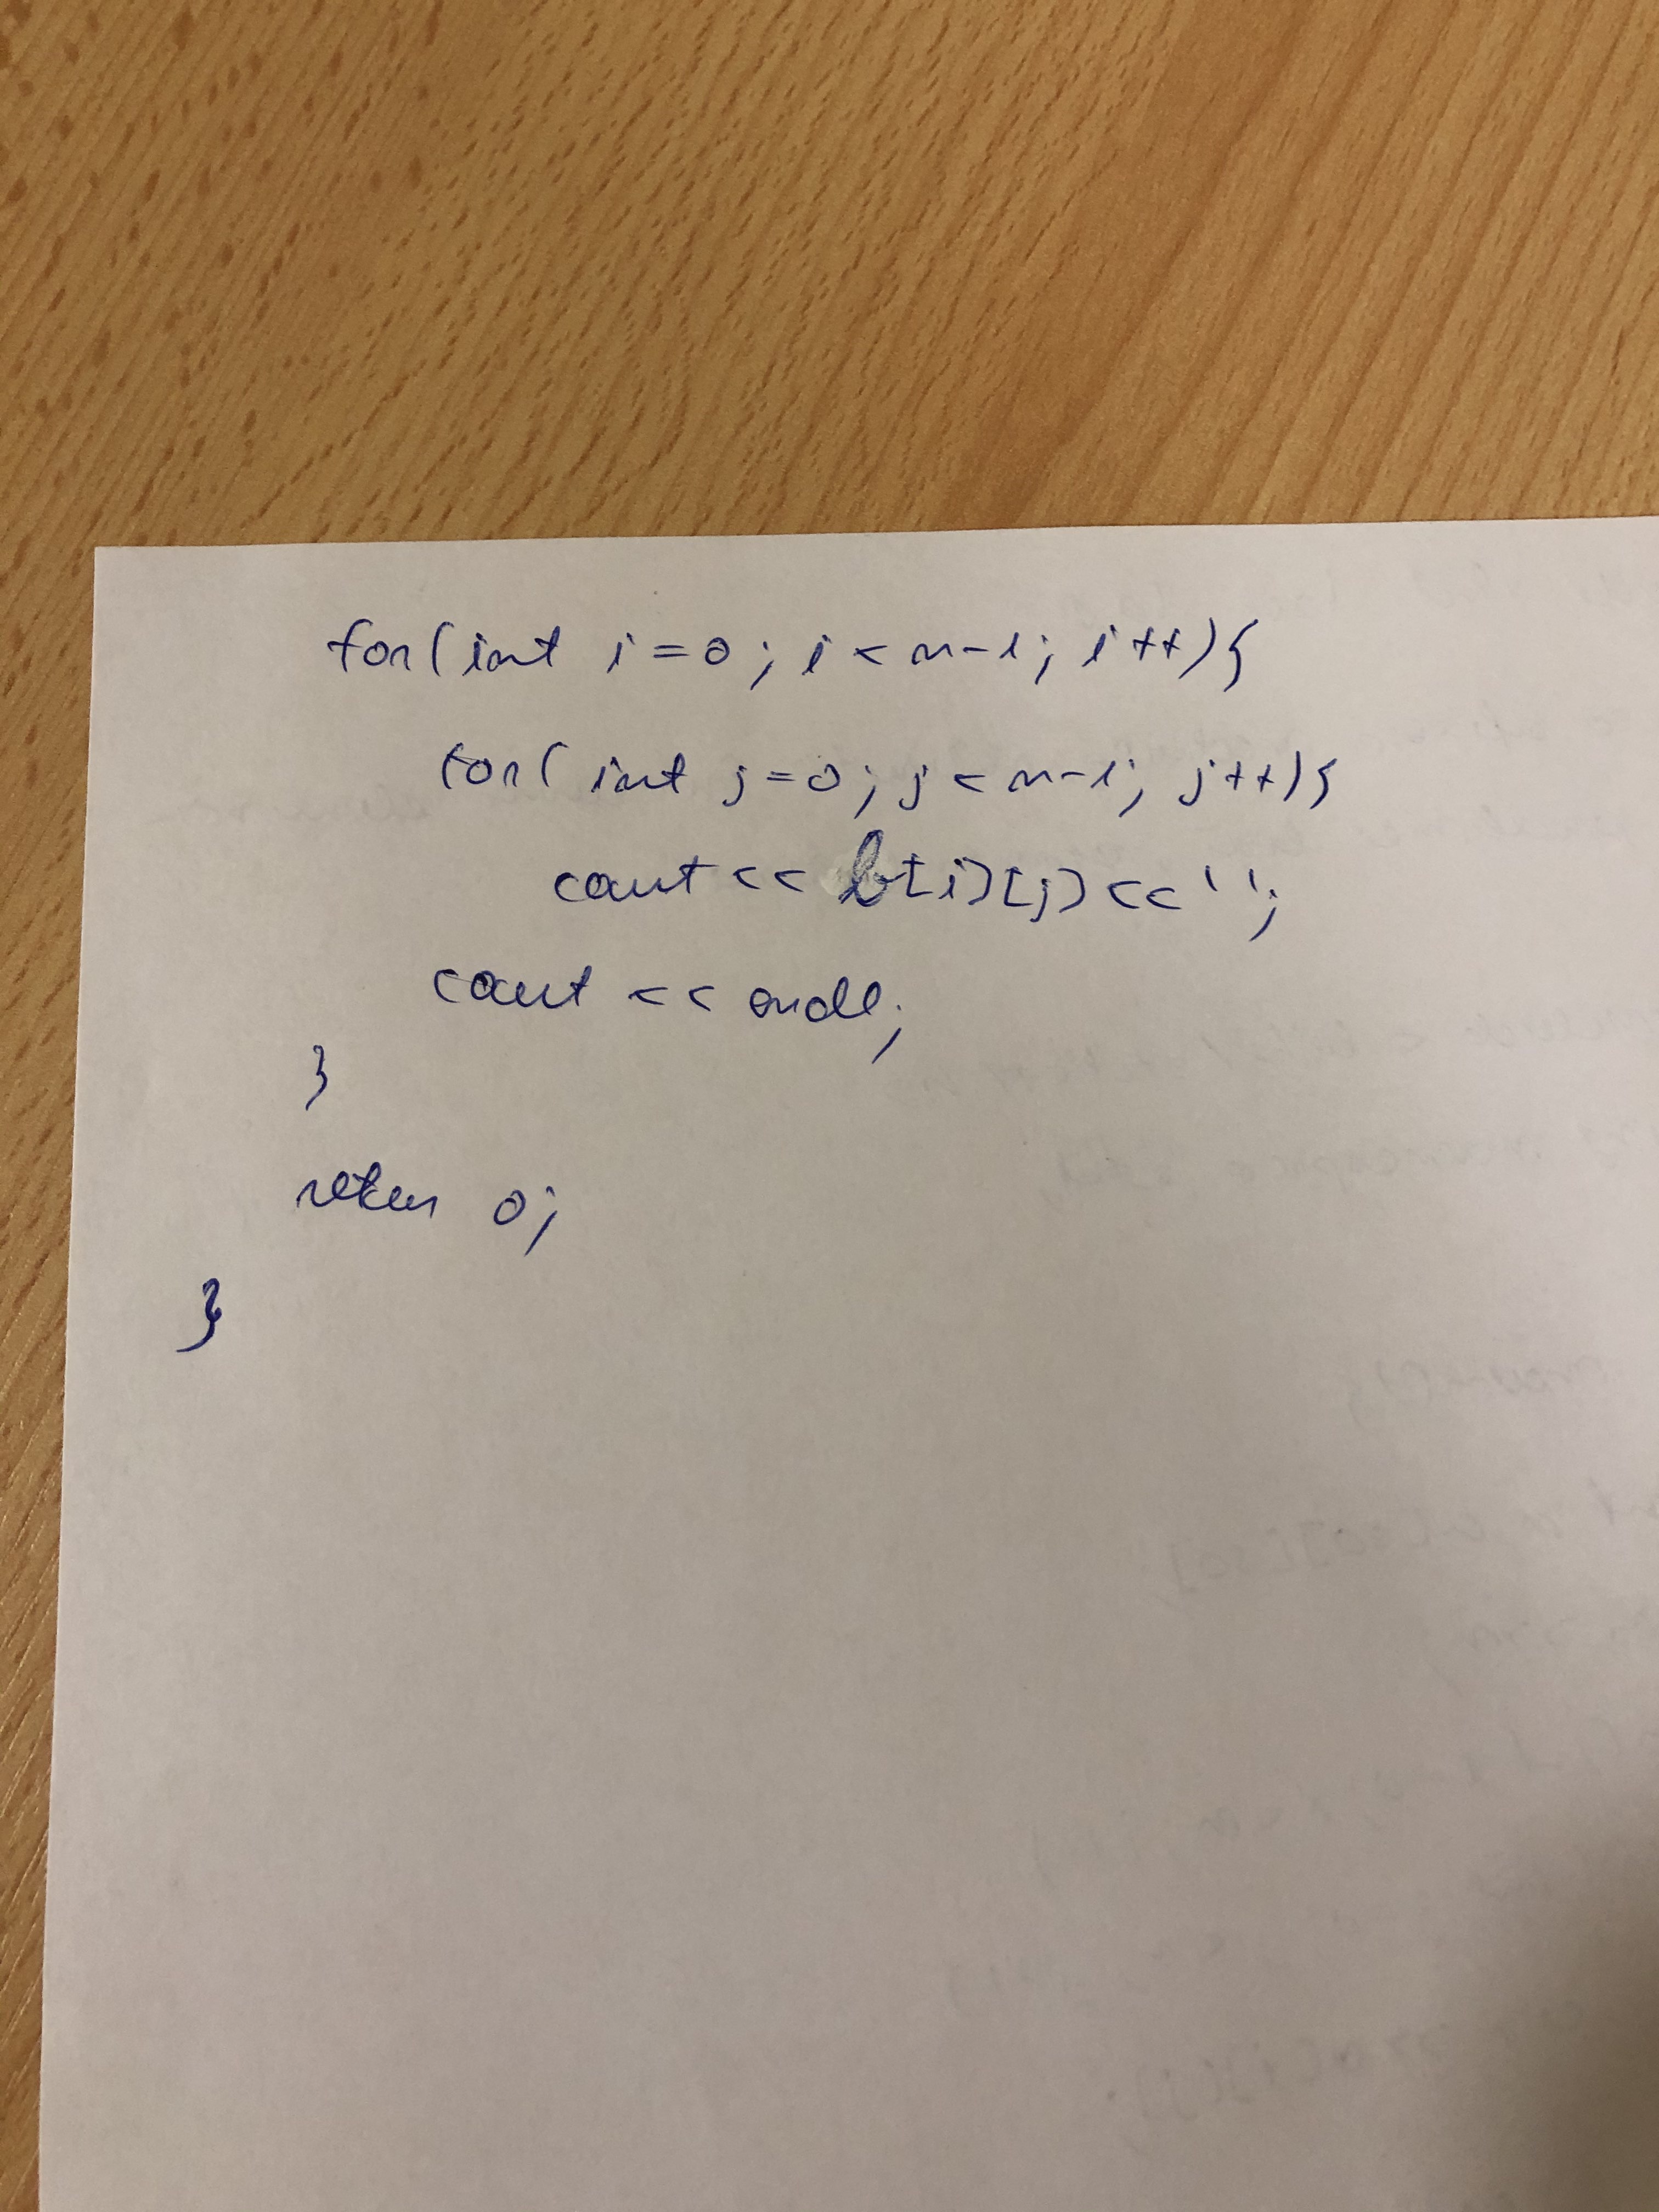 for(int i=0; i<n-1; i++){
for(int j=0; j<n-1; j++){
cout << b[i][j] <<' ';
cout << endl;
}
return 0;
}